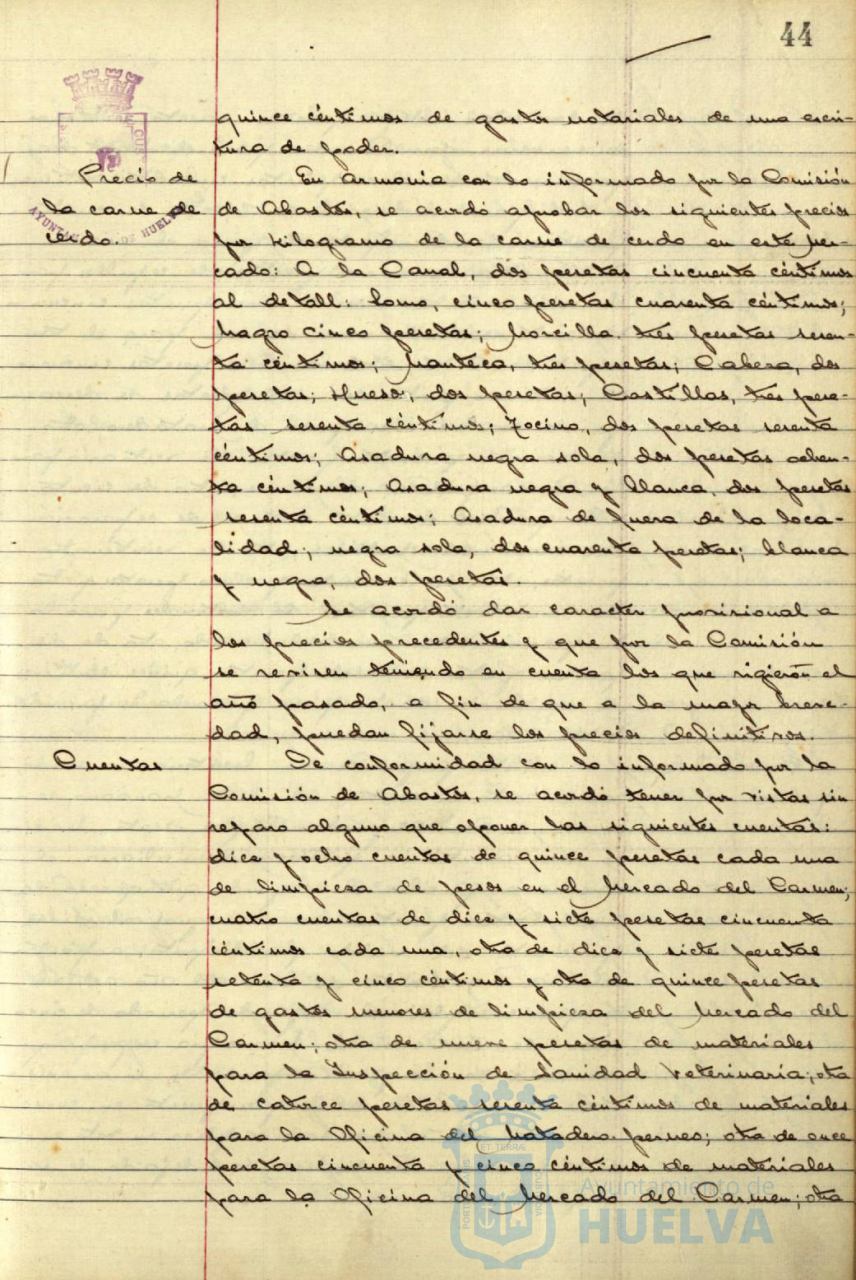 44
quince céntimos de gastos notariales de una escri-
tura de poder.
Precio de
la carne de
cerdo.
En armonia con lo informado por la Comisión
de Abastos, se acordó aprobar los siguientes precios
por kilogramo de la carne de cerdo en este Mer-
cado: A la Canal, dos pesetas cincuenta céntimos
al detall: Lomo, cinco pesetas cuarenta céntimos;
Magro cinco pesetas; Morcilla tres pesetas sesen-
ta céntimos; Manteca, tres pesetas; Cabeza, dos
pesetas; Hueso, dos pesetas; Costillas, tres pese-
tas sesenta céntimos; Tocino, dos pesetas sesenta
céntimos; Asadura negra sola, dos pesetas ochen-
ta céntimos; Asadura negra y blanca dos pesetas
sesenta céntimos; Asadura de fuera de la loca-
lidad; negra sola, dos cuarenta pesetas; blanca
y negra, dos pesetas.
Se acordó dar caracter provisional a
los precios precedentes y que por la Comisión
se revisen teniendo en cuenta los que rigierón el
año pasado, a fin de que a la mayor breve-
dad, puedan fijarse los precios definitivos.
Cuentas
De conformidad con lo informado por la
Comisión de Abastos, se acordó tener por vistas sin
reparo alguno que oponer las siguientes cuentas:
diez y ocho cuentas de quince pesetas cada una
de limpieza de pesos en el Mercado del Carmen;
cuatro cuentas de diez y siete pesetas cincuenta
céntimos cada una, otra de diez y siete pesetas
setenta y cinco céntimos y otra de quince pesetas
de gastos menores de limpieza del Mercado del
Carmen; otra de nueve pesetas de materiales
para la Inspección de Sanidad Veterinaria; otra
de catorce pesetas sesenta céntimos de materiales
para la Oficina del Matadero perneo; otra de once
pesetas cincuenta y cinco céntimos de materiales
para la Oficina del Mercado del Carmen; otra
Ayuntamiento de
HUELVA